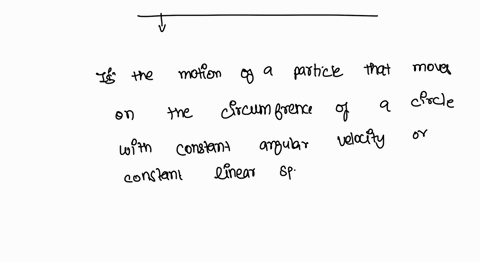 Is the motion of a particle that moves
on the circumfrence of a circle
with constant angular velocity or
constant linear sp.